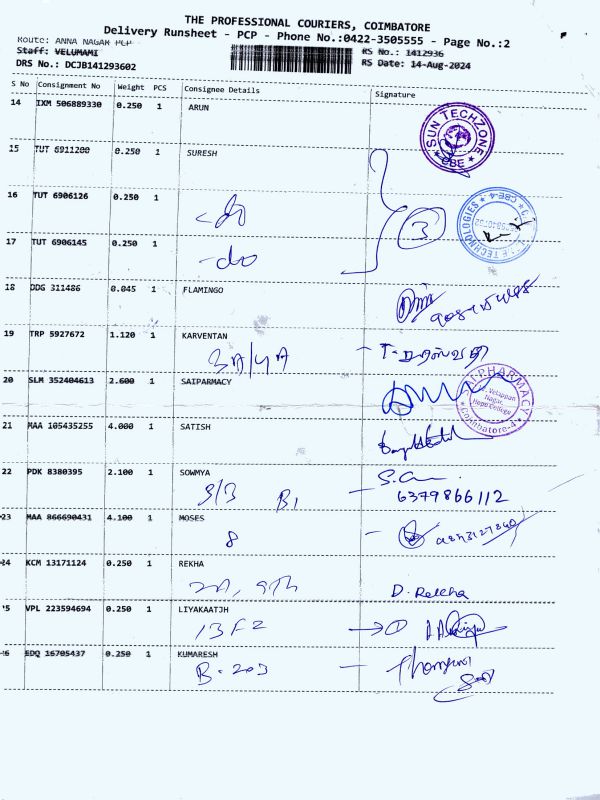 THE PROFESSIONAL COURIERS, COIMBATORE
Delivery Runsheet - PCP - Phone No.:0422-3505555 - Page No.:2
Route: ANNA NAGAR PCP
Staff: VELUMAMI
RS No.: 1412936
DRS No.: DCJB141293602
RS Date: 14-Aug-2024
S No Consignment No Weight PCS Consignee Details Signature
14 IXM 506889330 0.250 1 ARUN
SUN TECHZONE
CBE
15 TUT 6911200 0.250 1 SURESH
16 TUT 6906126 0.250 1
-do
3
TECHNOLOGIES
CBE-4
17 TUT 6906145 0.250 1
-do
18 DDG 311486 0.045 1 FLAMINGO
19 TRP 5927672 1.120 1 KARVENTAN
3A/4A
20 SLM 352404613 2.600 1 SAIPARMACY
PHARMACY
Velappan
Nagar,
Hope College
Coimbatore-4
21 MAA 105435255 4.000 1 SATISH
22 PDK 8380395 2.100 1 SOWMYA
3/3 B1
6379866112
23 MAA 866690431 4.100 1 MOSES
8
24 KCM 13171124 0.250 1 REKHA
2A, 9th
D. Rekha
25 VPL 223594694 0.250 1 LIYAKAATJH
13F2
1
26 EDQ 16705437 0.250 1 KUMARESH
B-203